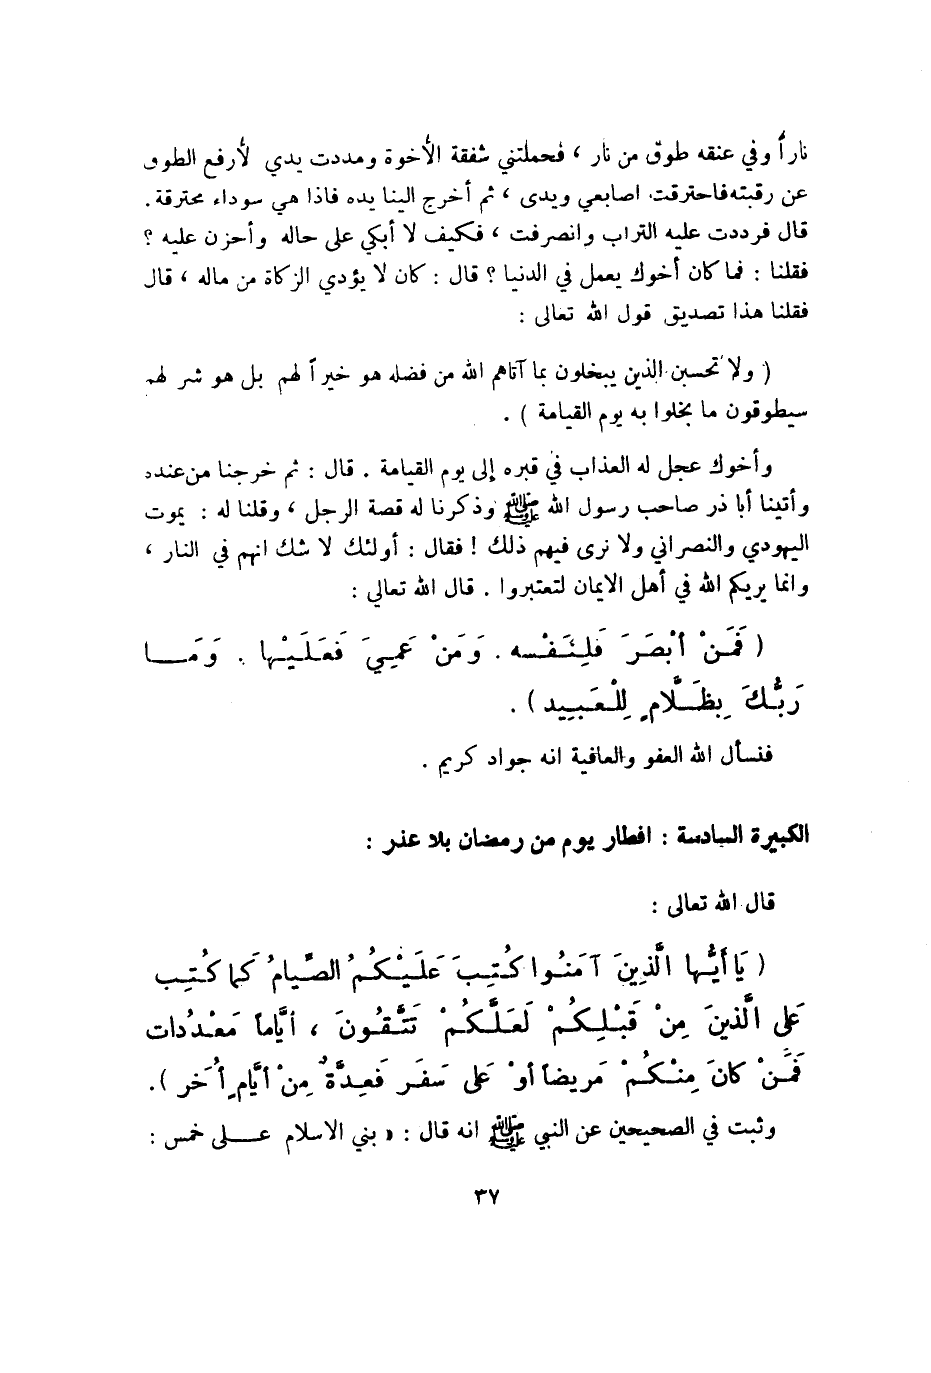 ناراً وفي عنقه طوق من نار ، فحملتني شفقة الأخوة ومددت يدي لأرفع الطوق
عن رقبته فاحترقت اصابعي ويدى ، ثم أخرج الينا يده فاذا هي سوداء محترقة .
قال فرددت عليه التراب وانصرفت ، فكيف لا أبكي على حاله وأحزن عليه ؟
فقلنا : فما كان أخوك يعمل في الدنيا ؟ قال : كان لا يؤدي الزكاة من ماله ، قال
فقلنا هذا تصديق قول الله تعالى :
( ولا تحسبن الذين يبخلون بما آتاهم الله من فضله هو خيراً لهم بل هو شر لهم
سيطوقون ما بخلوا به يوم القيامة ) .
وأخوك عجل له العذاب في قبره إلى يوم القيامة . قال : ثم خرجنا من عنده
وأتينا أبا ذر صاحب رسول الله ﷺ وذكرنا له قصة الرجل ، وقلنا له : يموت
اليهودي والنصراني ولا نرى فيهم ذلك ! فقال : أولئك لا شك انهم في النار ،
وانما يريكم الله في أهل الايمان لتعتبروا . قال الله تعالى :
( فَمَنْ أبْصَرَ فَلِنَفْسه . وَمَنْ عَمِيَ فَعَلَيْها . وَمَا
رَبُّكَ بِظَلَّامٍ لِلْعَبِيد ) .
فنسأل الله العفو والعافية انه جواد كريم .
الكبيرة السادسة : افطار يوم من رمضان بلا عذر :
قال الله تعالى :
( يَا أَيُّها الَّذِينَ آمَنُوا كُتِبَ عَلَيْكُمُ الصِّيامُ كَما كُتِب
عَلى الَّذينَ مِنْ قَبْلِكُمْ لَعَلَّكُمْ تَتَّقُونَ ، أيَّاماً مَعْدُدات
فَمَنْ كانَ مِنْكُمْ مَريضاً أوْ عَلى سَفَر فَعِدَّةٌ مِنْ أيَّامٍ أُخَر ) .
وثبت في الصحيحين عن النبي ﷺ انه قال : « بني الاسلام على خمس :
٣٧